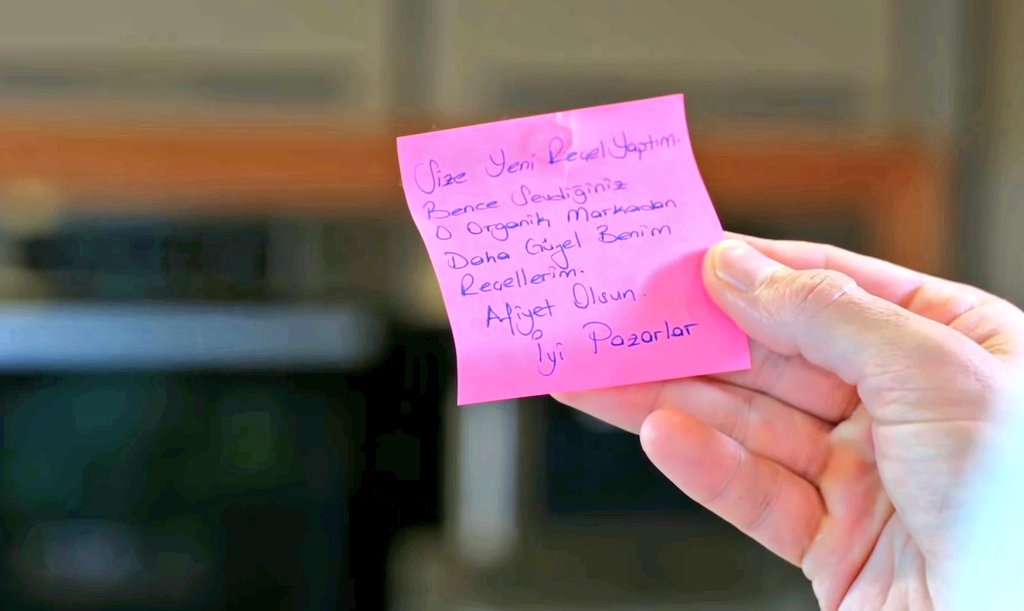 Size Yeni Reçel Yaptım.
Bence Sevdiğiniz
O Organik Markadan
Daha Güzel Benim
Reçellerim.
Afiyet Olsun.
İyi Pazarlar